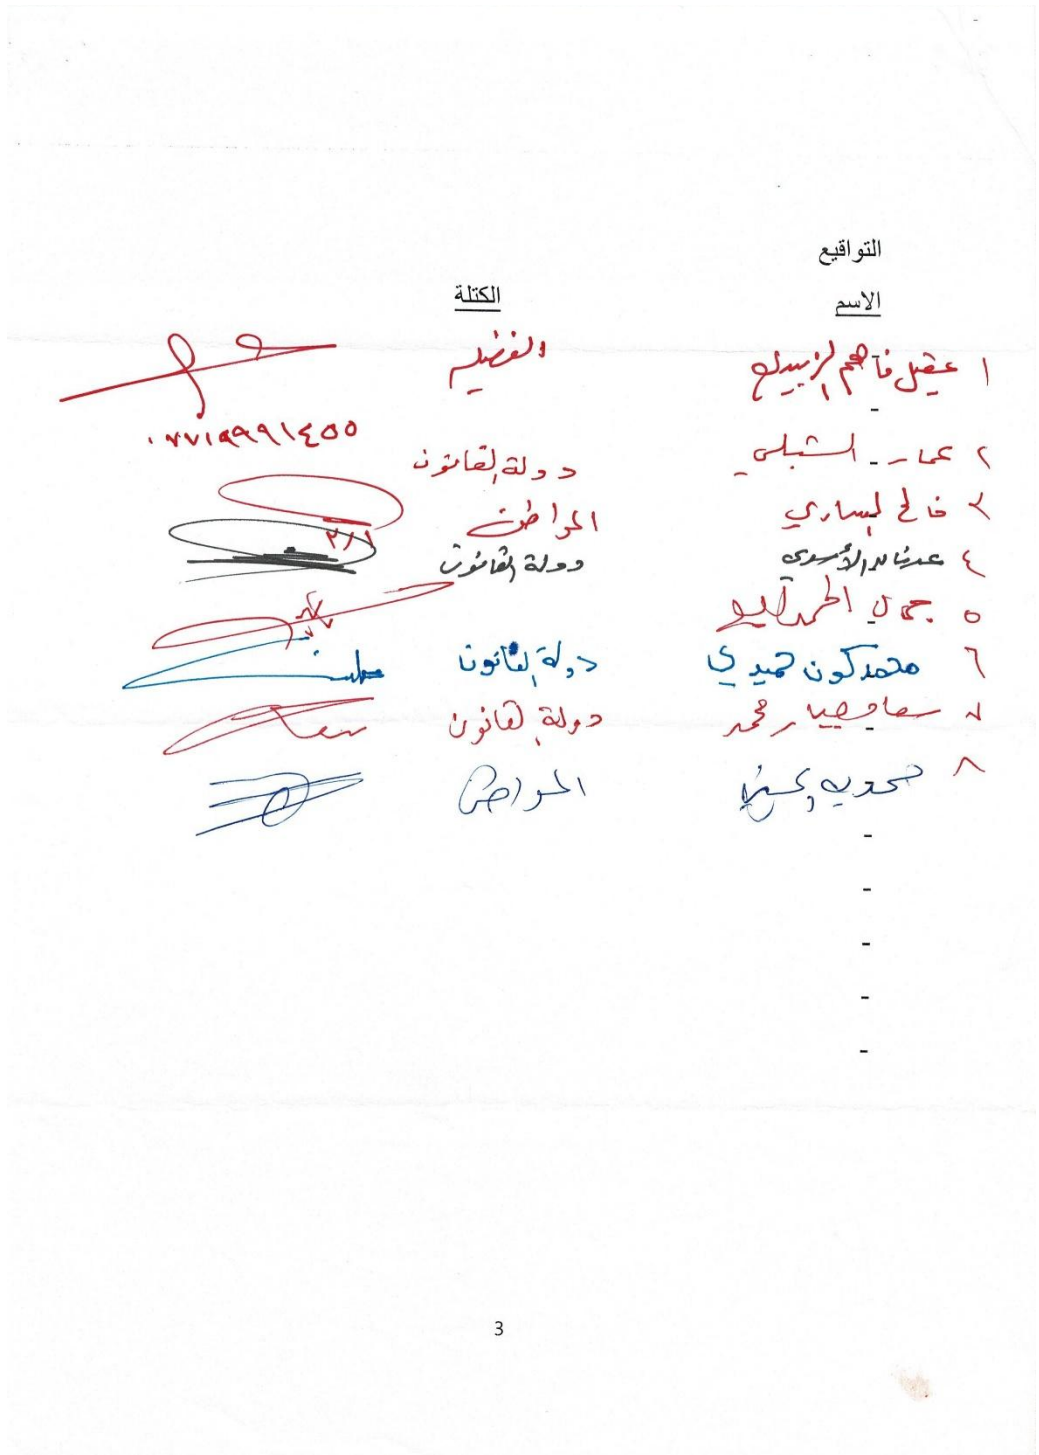 التواقيع
الاسم الكتلة
١ عقيل فاهم الزبيدي الفضيله
٠٧٧١٩٩٩١٤٥٥
٢ عمار الشبلي دولة القانون
٣ فالح الساري المواطن
٣/١
٤ عدنان الأسدي دولة القانون
٥ جمال المحمداوي
٦ محمد كون حميدي دولة القانون
٧ سعاد جبار محمد دولة القانون
٨ المواطن
-
-
-
-
-
3